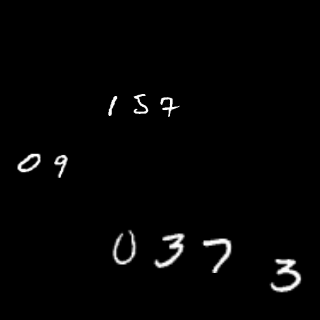 157
09
037
3